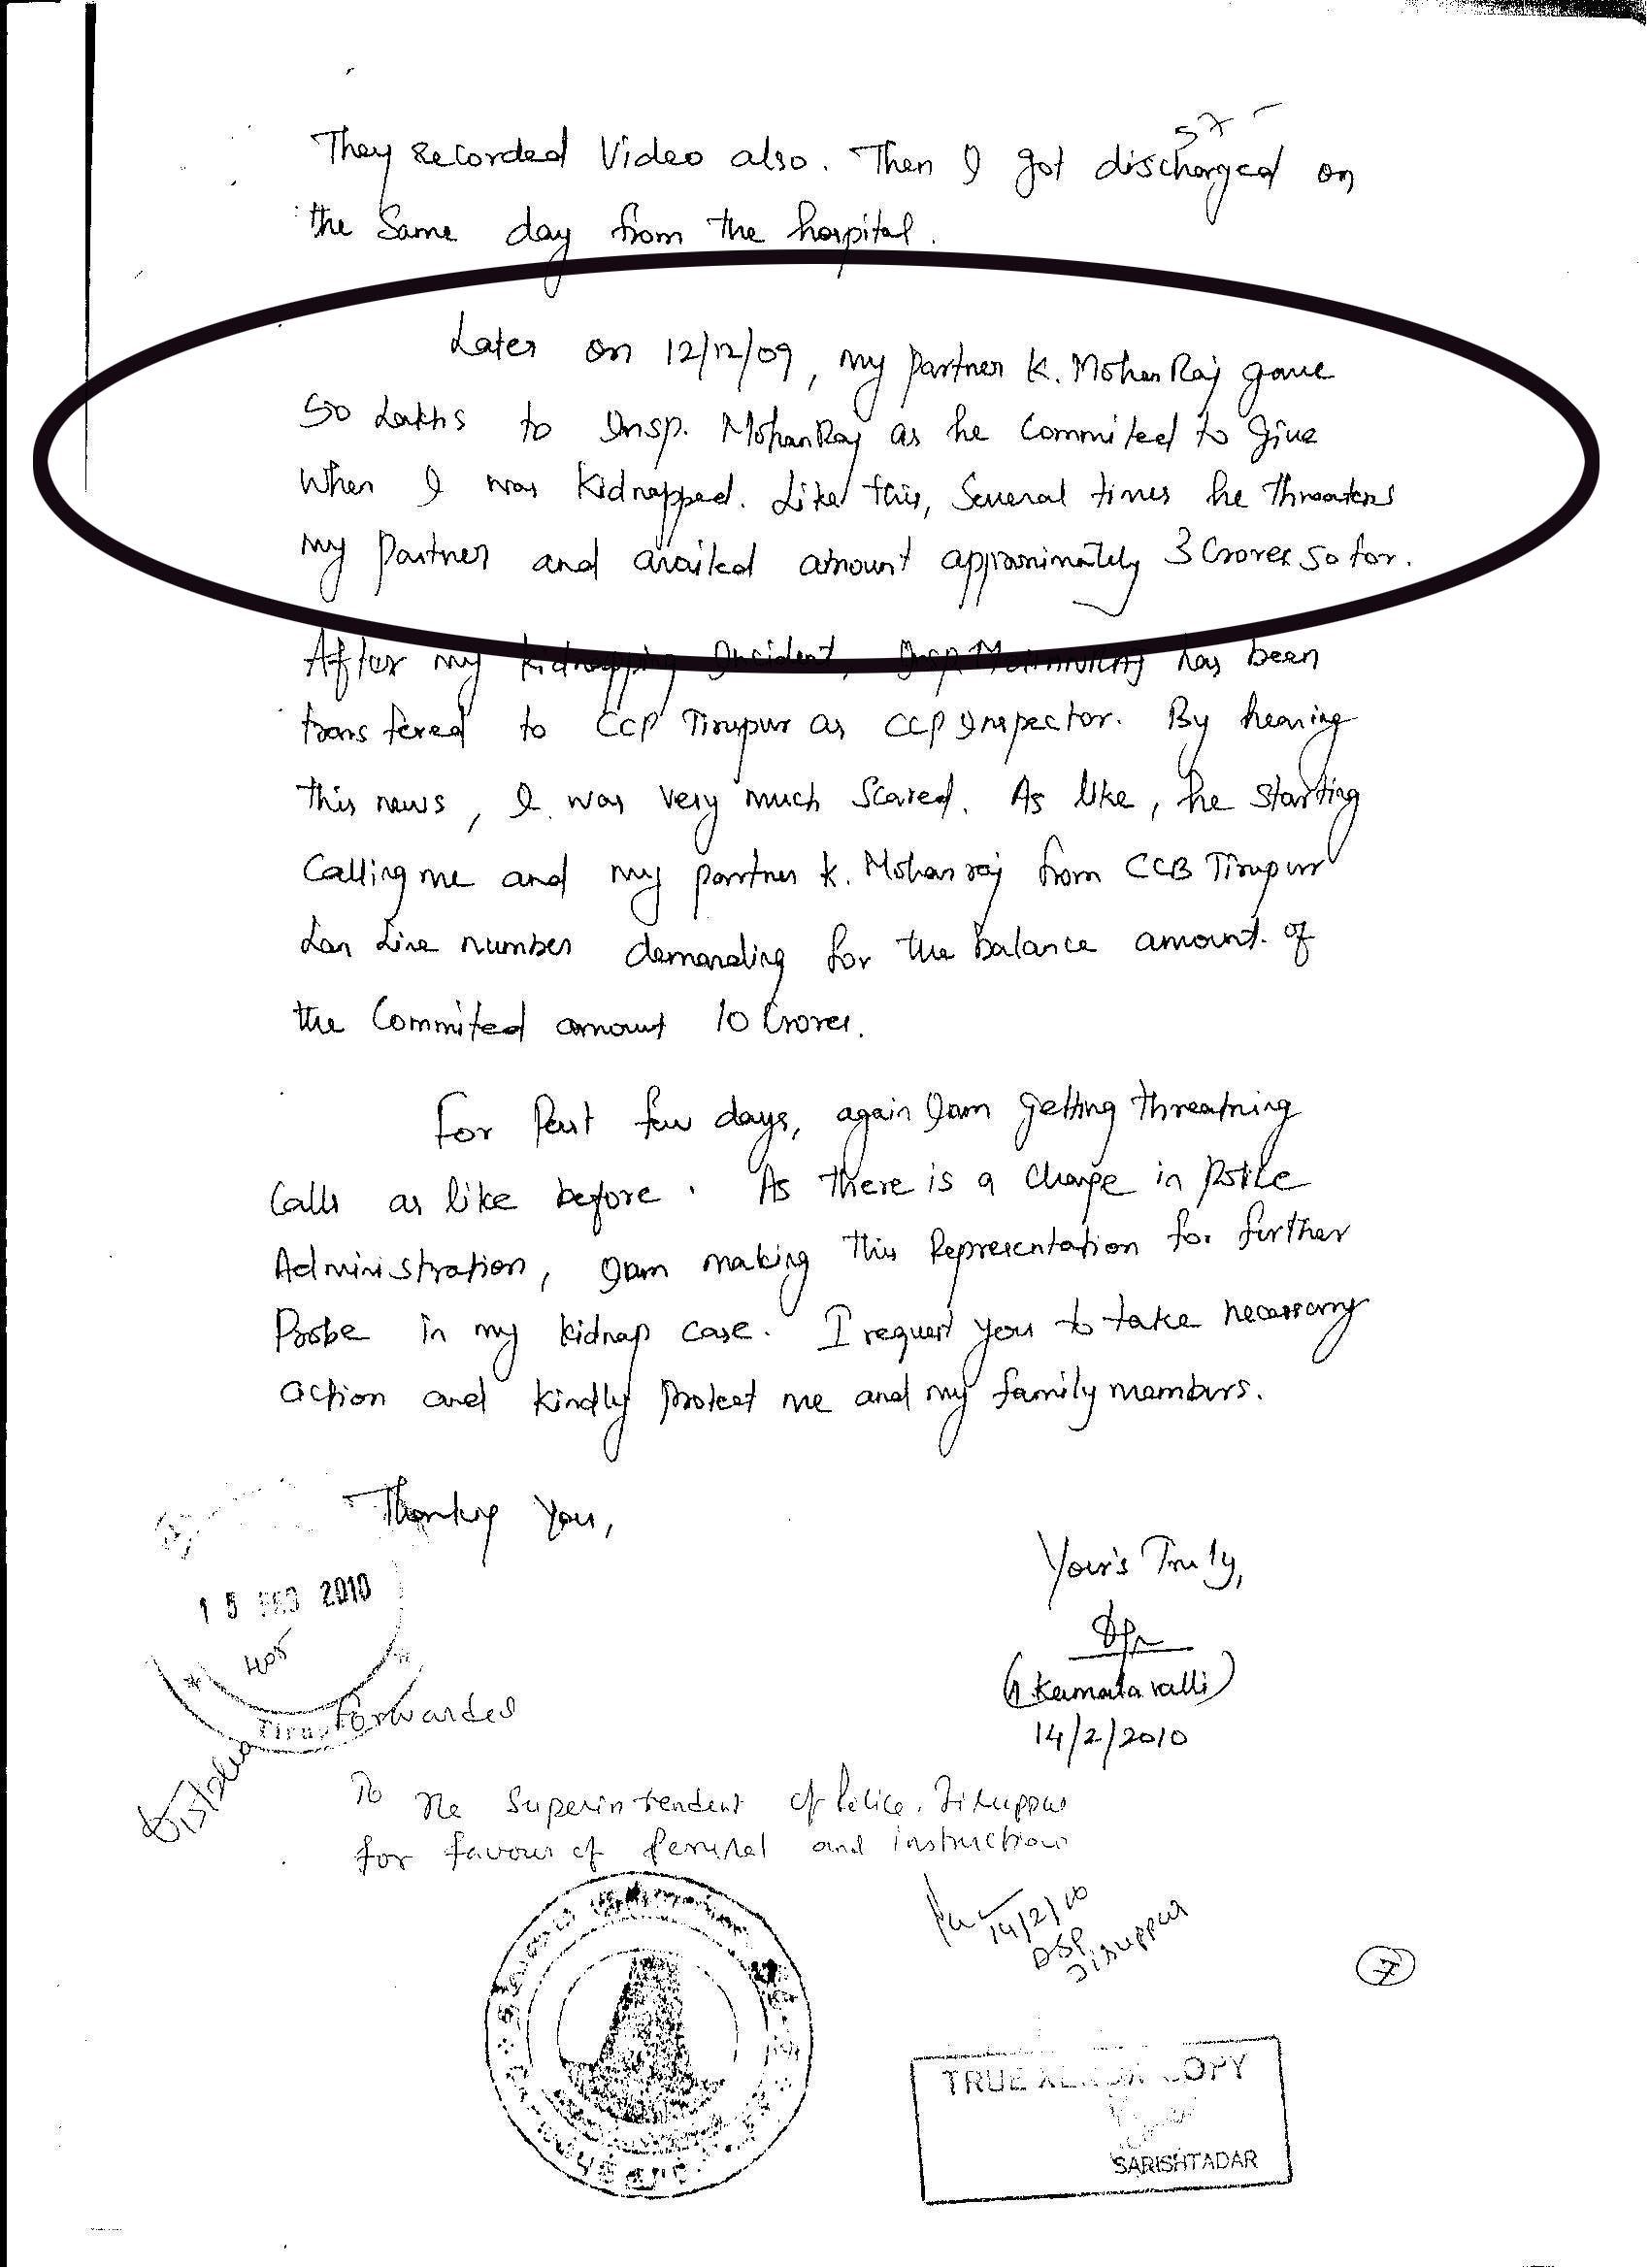 57
They Recorded Video also. Then I got discharged on
the Same day from the hospital.
Later on 12/12/09, my partner K. MohanRaj gave
50 Lakhs to Insp. MohanRaj as he Commited to give
When I was Kidnapped. Like this, Several times he threatens
my Partner and availed amount approximately 3 Crores so far.
After my kidnapping Insident, Insp. has been
transfered to CCP Tirupur as CCP Inspector. By hearing
this news, I was very much Scared. As like, he starting
Calling me and my partner K. Mohanraj from CCB Tirupur
Lan Line number demanding for the balance amount of
the Commited amount 10 Crores.
For Past few days, again Iam getting threatning
Calls as like before. As there is a change in Police
Administration, Iam making this Representation for further
Probe in my kidnap case. I request you to take necessary
action and kindly protect me and my family members.
Thanking You,
Your's Truly,
15 FEB 2010
405
Kamalavalli)
14/2/2010
Forwarded
To The Superintendent of Police, Tiruppur
for favour of Perusal and instruction
14/2/10
DSP
Tiruppur
7
TRUE XEROX COPY
SARISHTADAR